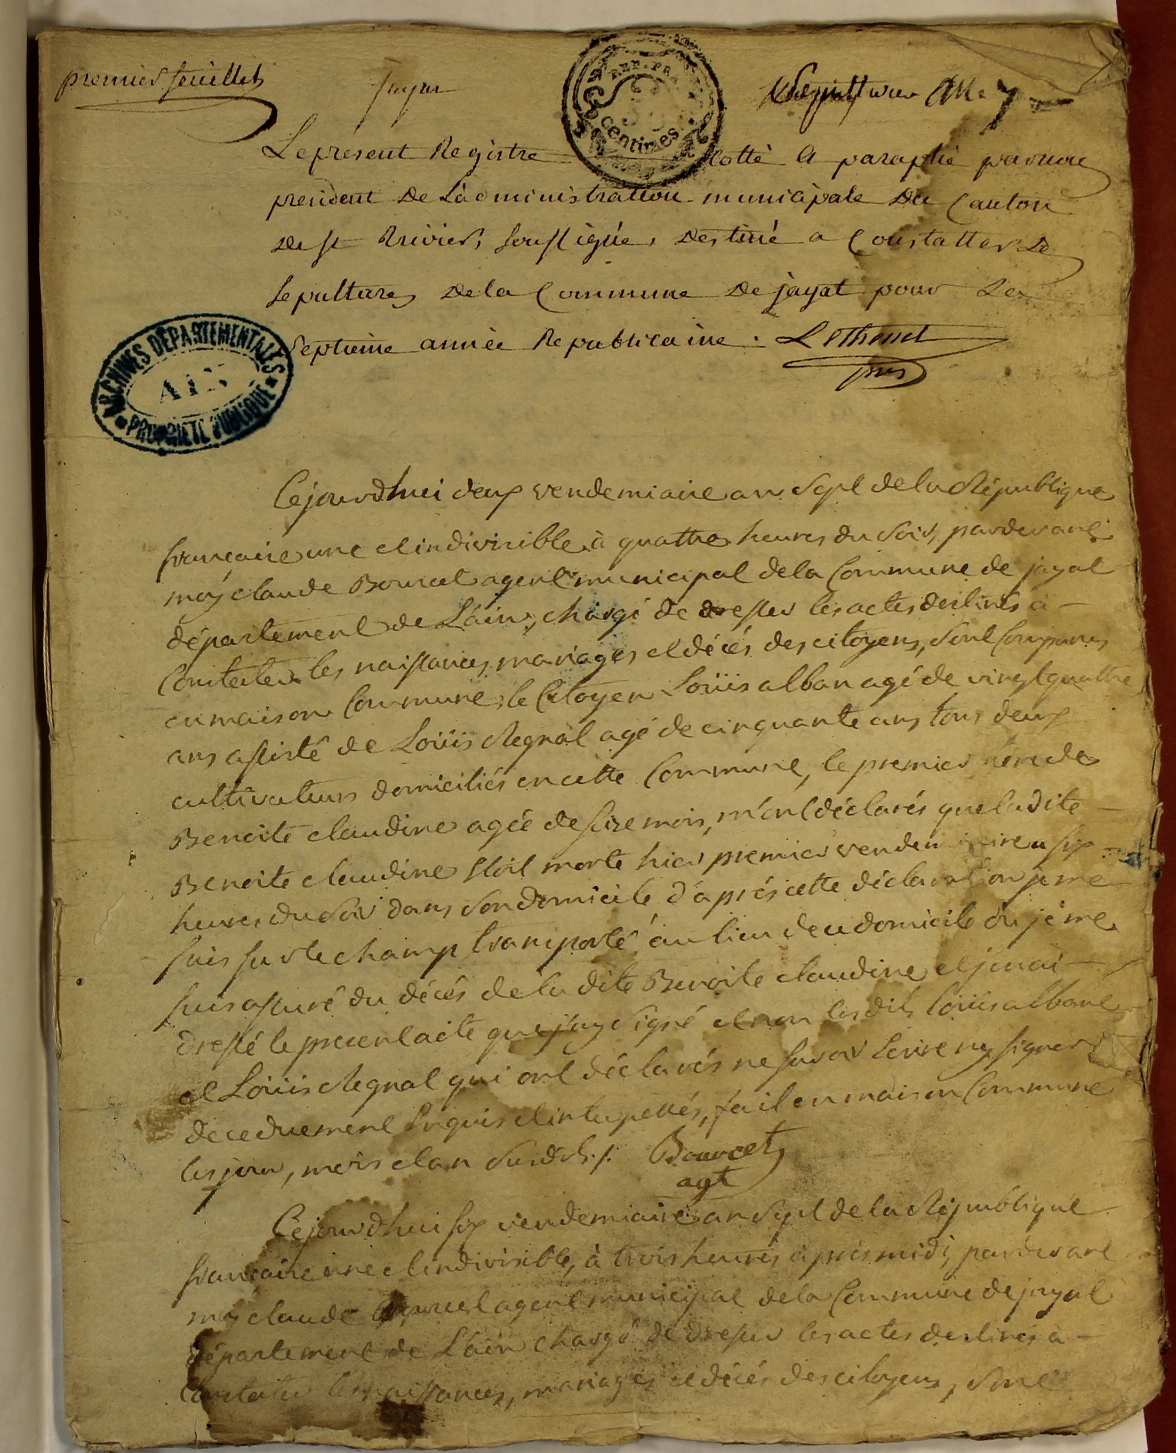 premier feuillet
Jayat
an 7
REP. FRA
centimes
Le present Registre cotté et paraphé par nous
president de L'administration municipale du Canton
de st trivier, soussigné, destiné a Constatter Les
sepultures de la Commune de jayat pour La
septieme année Republicaine.
ARCHIVES DÉPARTEMENTALES
AIN
PROPRIÉTÉ PUBLIQUE
Cejourdhui deux vendemiaire an sept de la République
francaise une et indivisible à quattre heures du soir, pardevant
moy claude Bourcet agent municipal dela Commune de jayat
département de L'ain, chargé de dresser les actes destinés à
Constater les naissances, mariages et décés des citoyens, sont Comparus
en maison Commune, le Citoyen Loüis alban agé de vingt quattre
ans assisté de Loüis Regnal agé de cinquante ans tous deux
cultivateurs domiciliés en cette Commune, le premier père de
Benoite claudine agée de seize mois, m'ont déclarés que ladite
Benoite claudine etoit morte hier premier vendemiaire a six
heures du soir dans son domicile d'aprés cette déclaration je me
suis sur le champ transporté au lieu de ce domicile où je me
suis assuré du décés de la dite Benoite claudine et j'en ai
dressé le present acte que j'ay signé et non les dits Loüis alban
et Loüis Regnal qui ont déclarés ne savoir Ecrire ny signer
de ce duement Enquis et interpellés, fait en maison Commune
les jour, mois et an susdits ./. Bourcet
agt
Cejourdhui six vendemiaire an sept de la République
francaise une et indivisible, à trois heures après midi, pardevant
moy claude Bourcet agent municipal dela Commune de jayat
département de L'ain chargé de dresser les actes destinés à
Constater les naissances, mariages et décés des citoyens, sont